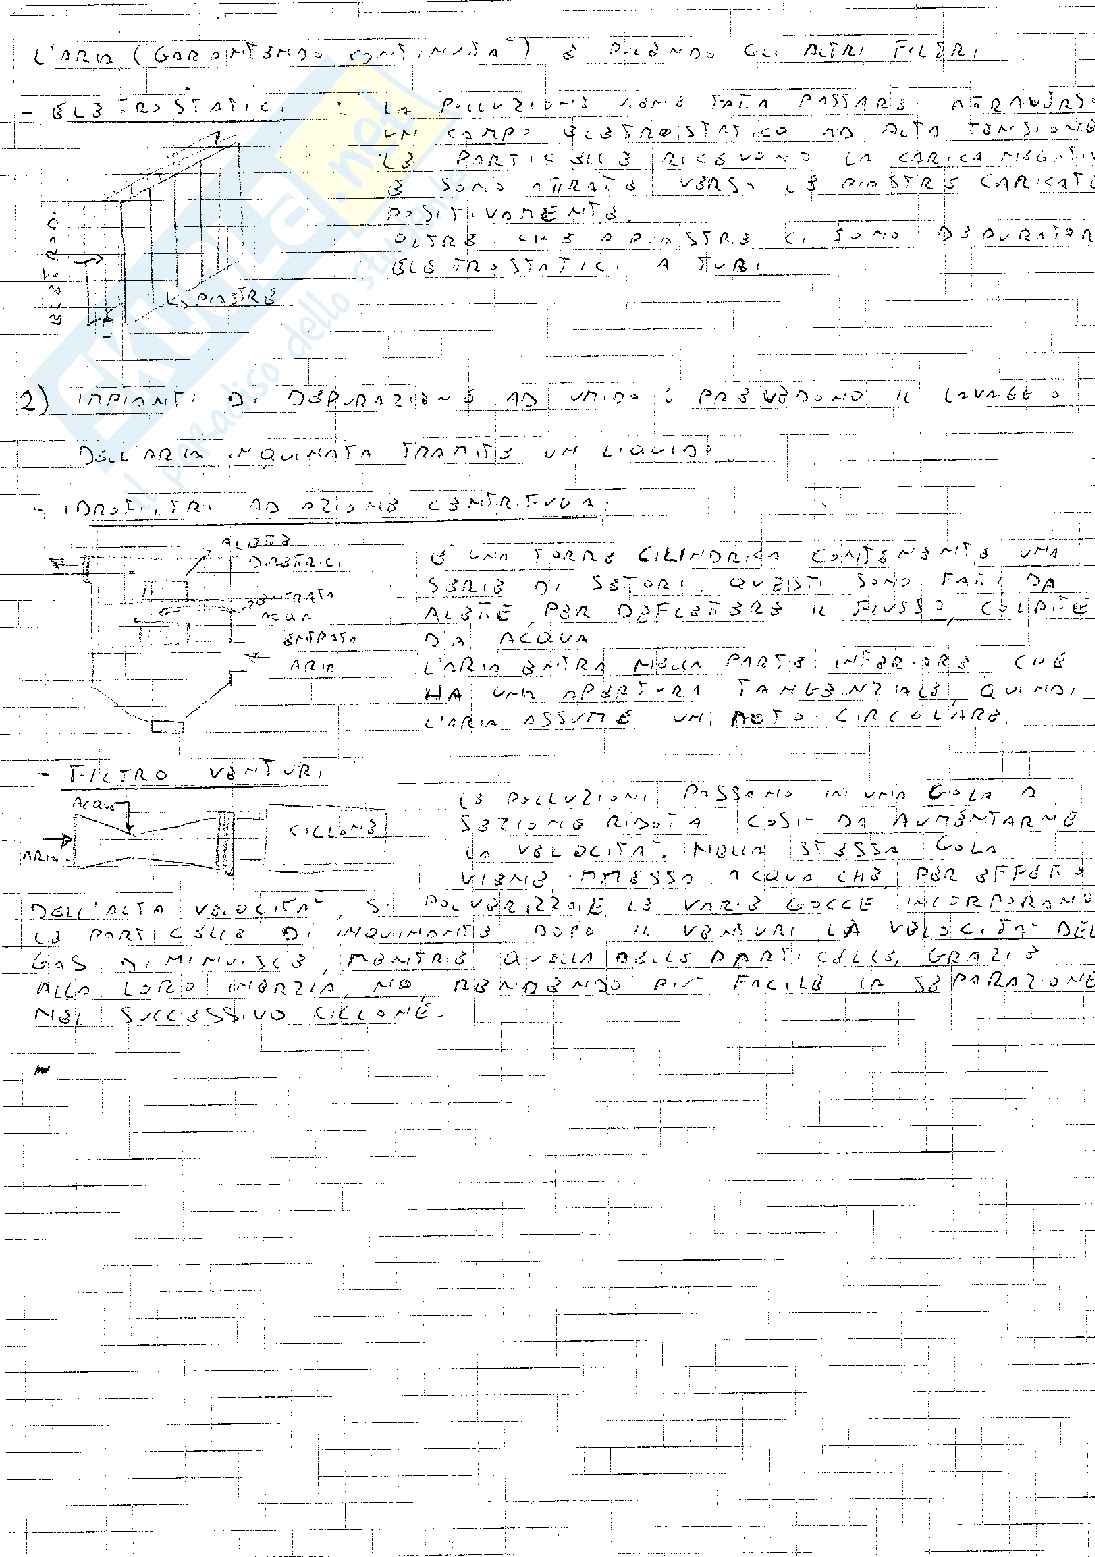 L'ARIA (GARANTENDO CONTINUITA') E PULENDO GLI ALTRI FILTRI
- ELETROSTATICI : LA POLLUZIONE VIENE FATA PASSARE ATRAVERSO
UN CAMPO ELETROSTATICO AD ALTA TENSIONE
LE PARTICELLE RICEVONO LA CARICA NEGATIV
E SONO ATTRATE VERSO LE PIASTRE CARICATE
POSITIVAMENTE.
OLTRE CHE A PIASTRE CI SONO DEPURATOR
ELETROSTATICI A TUBI
PIASTRE
2) IMPIANTI DI DEPURAZIONE AD UMIDO : PREVEDONO IL LAVAGGIO
DELL'ARIA INQUINATA TRAMITE UN LIQUIDO.
- IDROFILTRI AD AZIONE CENTRIFUGA:
ALETE
DIRETRICI
ENTRATA
ACQUA
ENTRATA
ARIA
E UNA TORRE CILINDRICA CONTENENTE UNA
SERIE DI SETORI. QUESTI SONO FATI DA
ALETE, PER DEFLETERE IL FLUSSO, COLPITE
DA ACQUA
L'ARIA ENTRA NELLA PARTE INFERIORE CHE
HA UNA APERTURA TANGENZIALE, QUINDI
L'ARIA ASSUME UN MOTO CIRCOLARE.
- FILTRO VENTURI
ACQUA
ARIA
CICLONE
LE POLLUZIONI PASSANO IN UNA GOLA A
SEZIONE RIDOTA COSI' DA AUMENTARNE
LA VELOCITA'. NELLA STESSA GOLA
VIENE IMMESSA ACQUA CHE, PER EFFETO
DELL'ALTA VELOCITA', SI POLVERIZZA E LE VARIE GOCCE INCORPORANO
LE PARTICELLE DI INQUINANTE DOPO IL VENTURI LA VELOCITA' DEL
GAS DIMINUISCE, MENTRE QUELLA DELLE PARTICELLE, GRAZIE
ALLA LORO INERZIA, NO, RENDENDO PIU' FACILE LA SEPARAZIONE
NEL SUCCESSIVO CICLONE.